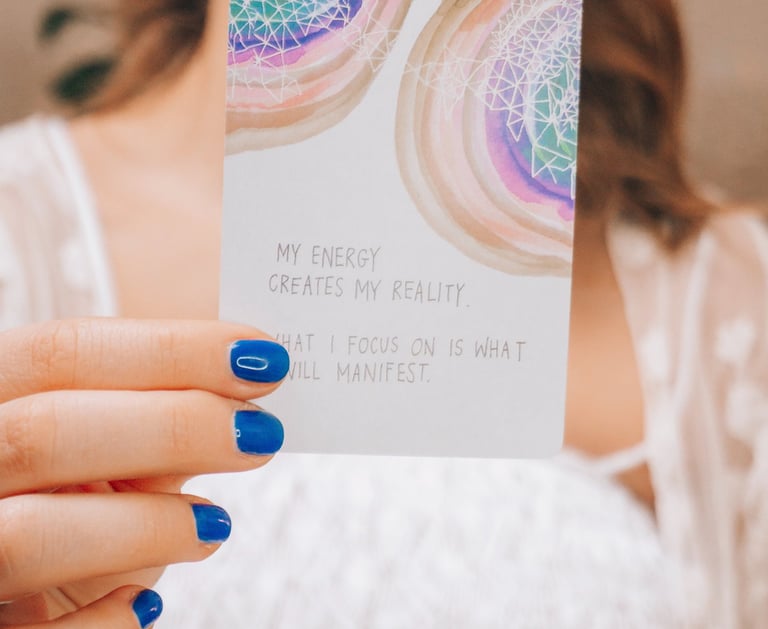 MY ENERGY
CREATES MY REALITY.
WHAT I FOCUS ON IS WHAT
WILL MANIFEST.